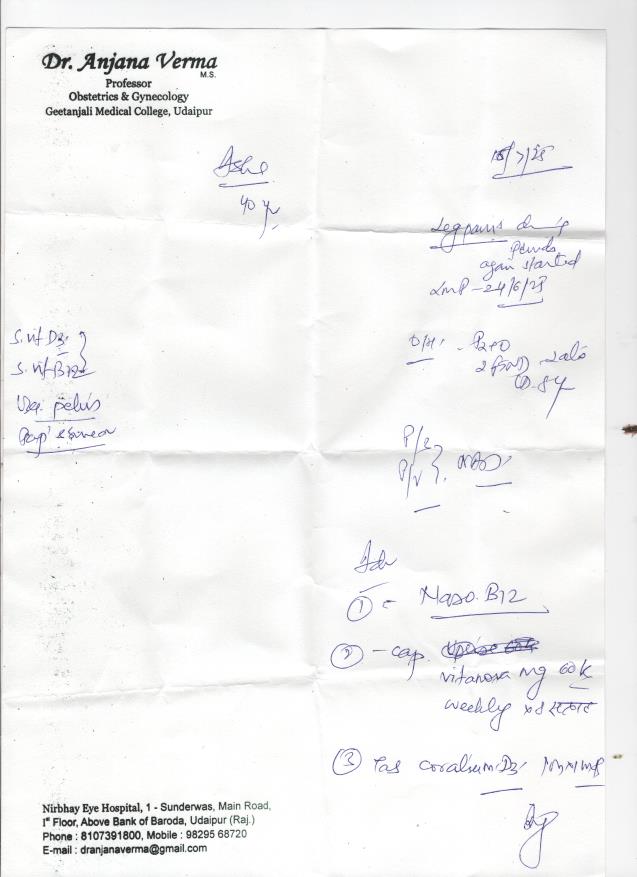 Dr. Anjana Verma
M.S.
Professor
Obstetrics & Gynecology
Geetanjali Medical College, Udaipur
Asha
40 yr
15/7/25
Leg pains
periods
again started
LMP - 24/6/25
S. Vit D3
S. Vit B12
O/H:
P2+0
2 FTND
P/S
P/V } NAD
pelvis
Pap's smear
Adv
① Naso B12
② - cap.
Vitanova mg 60K
weekly x 8
③ Tab Coralium D3
Nirbhay Eye Hospital, 1 - Sunderwas, Main Road,
1st Floor, Above Bank of Baroda, Udaipur (Raj.)
Phone : 8107391800, Mobile : 98295 68720
E-mail : dranjanaverma@gmail.com